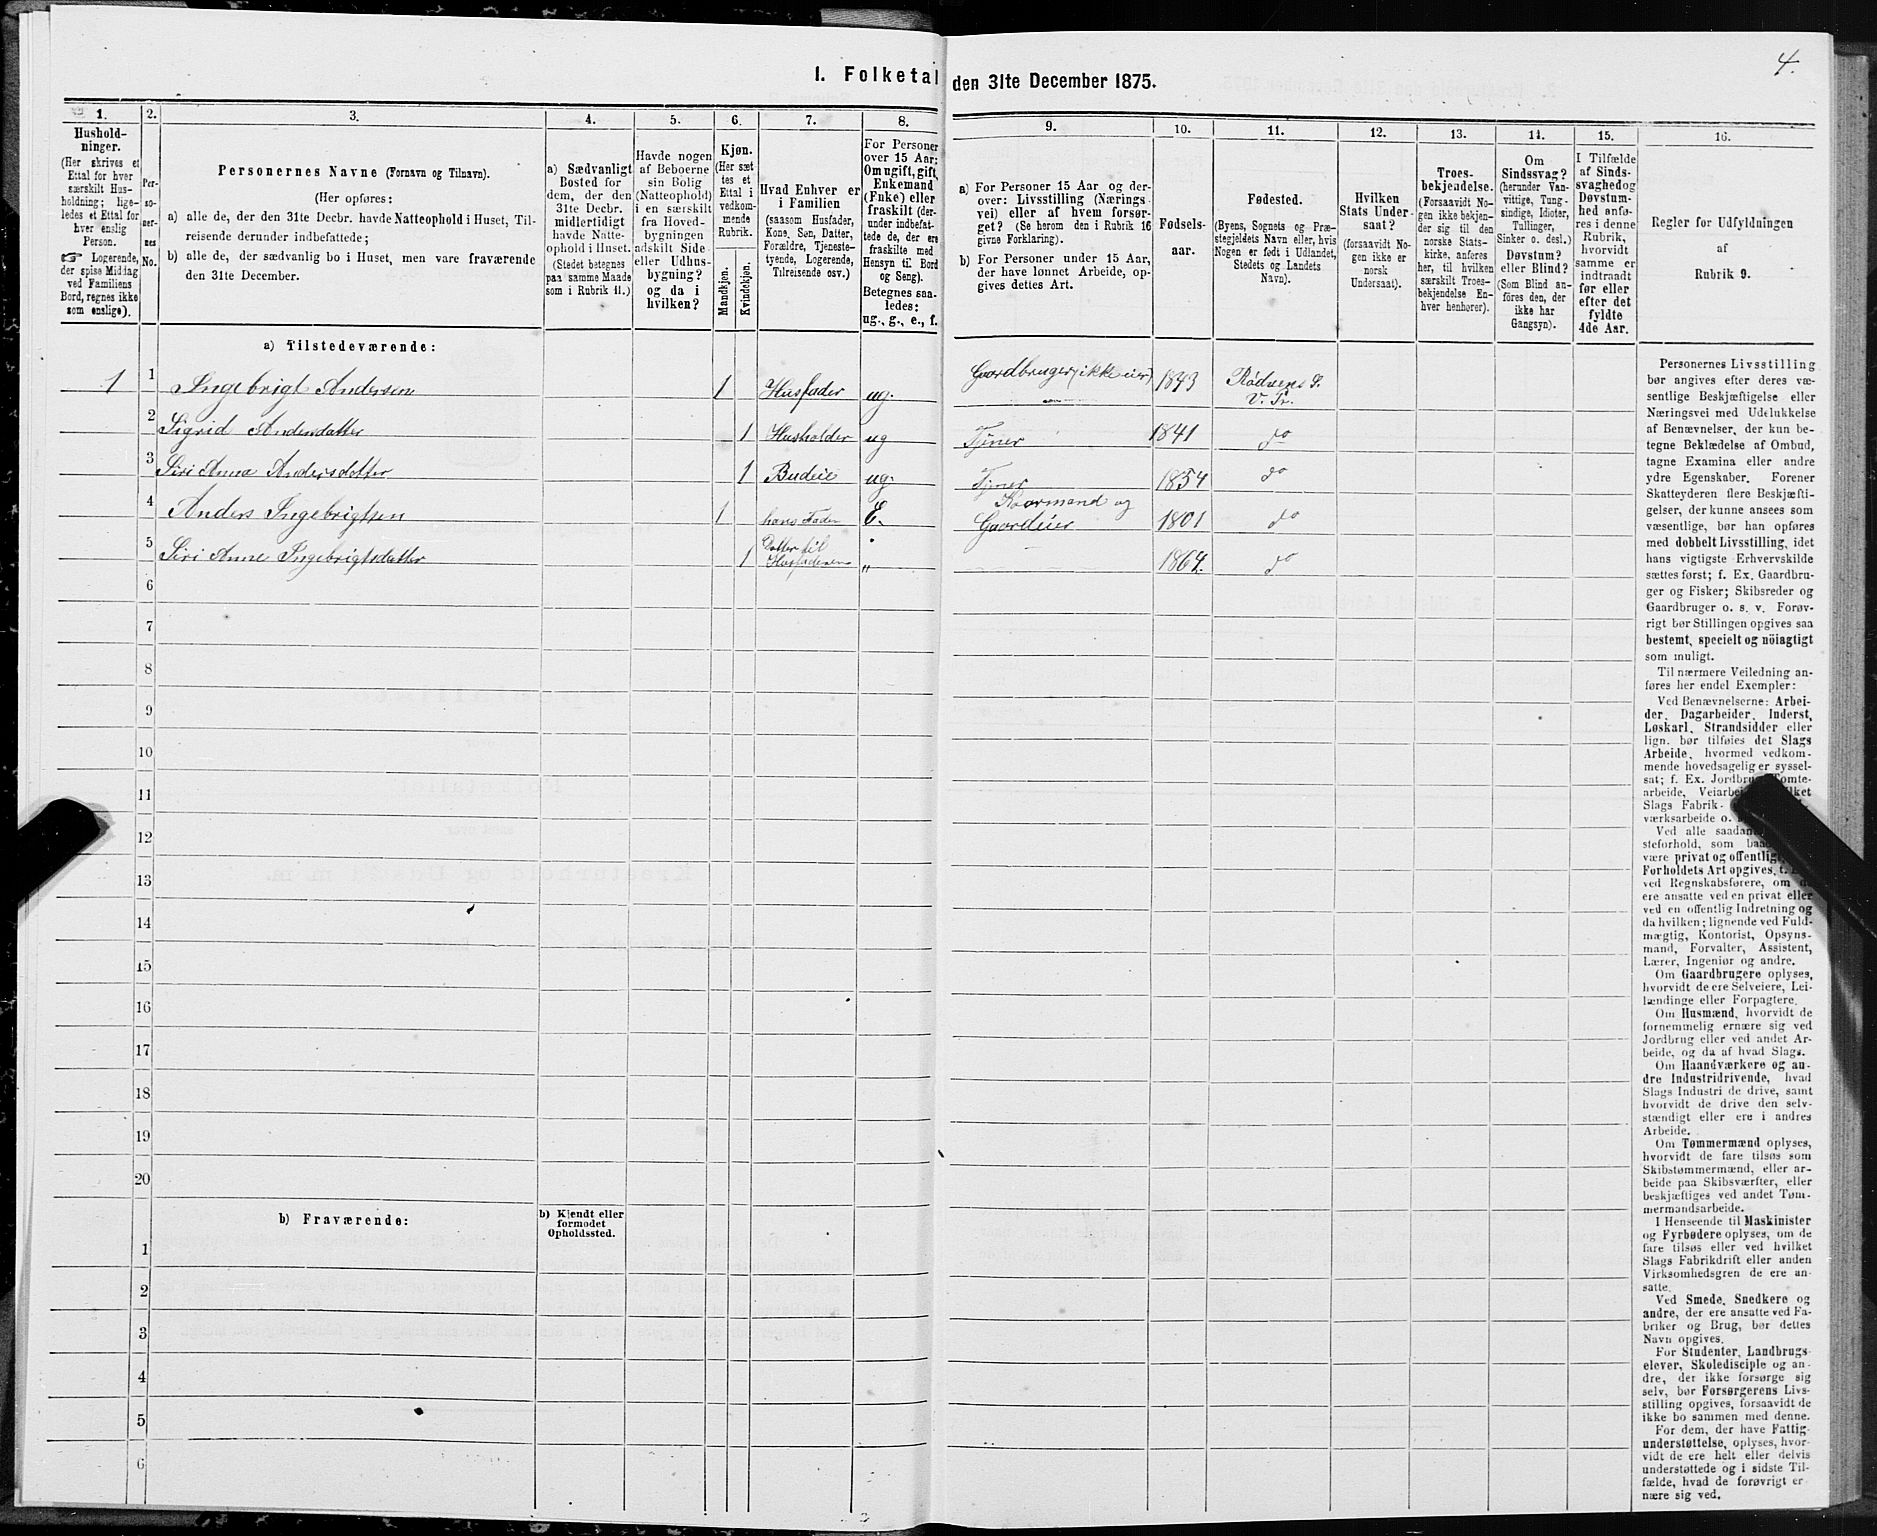 4.
1. Folketal den 31te December 1875.
1.
Hushold-
ninger.
(Her skrives et
Ettal for hver
særskilt Hus-
holdning; lige-
ledes et Ettal for
hver enslig
Person.
☞ Logerende,
der spise Middag
ved Familiens
Bord, regnes ikke
som enslige).
2.
Per-
so-
ner-
nes
No.
3.
Personernes Navne (Fornavn og Tilnavn).
(Her opføres:
a) alle de, der den 31te Decbr. havde Natteophold i Huset, Til-
reisende derunder indbefattede;
b) alle de, der sædvanlig bo i Huset, men vare fraværende
den 31te December.
4.
a) Sædvanligt
Bosted for
dem, der den
31te Decbr.
midlertidigt
havde Natte-
ophold i Huset.
(Stedet betegnes
paa samme Maade
som i Rubrik 11.)
5.
Havde nogen
af Beboerne
sin Bolig
(Natteophold)
i en særskilt
fra Hoved-
bygningen
adskilt Side-
eller Udhus-
bygning?
og da i
hvilken?
6.
Kjøn.
(Her sæt-
tes et
Ettal i
vedkom-
mende
Rubrik.
Mandkjøn.
Kvindekjøn.
7.
Hvad Enhver er
i Familien
(saasom Husfader,
Kone, Søn, Datter,
Forældre, Tjeneste-
tyende, Logerende,
Tilreisende osv.)
8.
For Personer
over 15 Aar:
Om ugift, gift,
Enkemand
(Enke) eller
fraskilt (der-
under indbefat-
tede de, der ere
fraskilte med
Hensyn til Bord
og Seng).
Betegnes saa-
ledes:
ug., g., e., f.
9.
a) For Personer 15 Aar og der-
over: Livsstilling (Nærings-
vei) eller af hvem forsør-
get? (Se herom den i Rubrik 16
givne Forklaring).
b) For Personer under 15 Aar,
der have lønnet Arbeide, op-
gives dettes Art.
10.
Fødsels-
aar.
11.
Fødested.
(Byens, Sognets og Præ-
stegjeldets Navn eller, hvis
Nogen er født i Udlandet,
Stedets og Landets
Navn).
12.
Hvilken
Stats Under-
saat?
(forsaavidt No-
gen ikke er
norsk
Undersaat).
13.
Troes-
bekjendelse.
(Forsaavidt No-
gen ikke bekjen-
der sig til den
norske Stats-
kirke, anføres
her, til hvilken
særskilt Troes-
bekjendelse En-
hver henhører).
14.
Om
Sindssvag?
(herunder Van-
vittige, Tung-
sindige, Idioter,
Tullinger,
Sinker o. desl.)
Døvstum?
eller Blind?
(Som Blind an-
føres den, der
ikke har
Gangsyn).
15.
I Tilfælde
af Sinds-
svaghed og
Døvstum-
hed anfø-
res i denne
Rubrik,
hvorvidt
samme er
indtraadt
før eller
efter det
fyldte
4de Aar.
16.
Regler for Udfyldningen
af
Rubrik 9.
a) Tilstedeværende:
1 1 Ingebrigt Andersen 1 Husfader ug. Gaardbruger (ikke eier) 1843 Rødvens S.
V. Pr.
2 Sigrid Andersdatter 1 Husholder ug Tjener 1841 do
3 Siri Anne Andersdatter 1 Budeie ug. Tjener 1854 do
4 Anders Ingebrigtsen 1 hans Fader E. Kaarmand og
Gaardeier 1801 do
5 Siri Anne Ingebrigtsdatter 1 Datter til
Husfaderen „ 1864. do
6
7
8
9
10
11
12
13
14
15
16
17
18
19
20
b) Fraværende:
b) Kjendt eller
formodet
Opholdssted.
1
2
3
4
5
6
Personernes Livsstilling
bør angives efter deres væ-
sentlige Beskjæftigelse eller
Næringsvei med Udelukkelse
af Benævnelser, der kun be-
tegne Beklædelse af Ombud,
tagne Examina eller andre
ydre Egenskaber. Forener
Skatteyderen flere Beskjæfti-
gelser, der kunne ansees som
væsentlige, bør han opføres
med dobbelt Livsstilling, idet
hans vigtigste Erhvervskilde
sættes først; f. Ex. Gaardbru-
ger og Fisker; Skibsreder og
Gaardbruger o. s. v. Forøv-
rigt bør Stillingen opgives saa
bestemt, specielt og nöiagtigt
som muligt.
Til nærmere Veiledning an-
føres her endel Exempler:
Ved Benævnelserne: Arbei-
der, Dagarbeider, Inderst,
Løskarl, Strandsidder eller
lign. bør tilføies det Slags
Arbeide, hvormed vedkom-
mende hovedsagelig er syssel-
sat; f. Ex. Jordbrug, Tomte-
arbeide, Veiarbei
Slags Fabrik-
værksarbeide o.
Ved alle saadan
steforhold, som
være privat og offentligt,
Forholdets Art opgives,
ved Regnskabsførere, om
ere ansatte ved en privat eller
ved en offentlig Indretning og
da hvilken; lignende ved Fuld-
mægtig, Kontorist, Opsyns-
mand, Forvalter, Assistent,
Lærer, Ingeniør og andre.
Om Gaardbrugere oplyses,
hvorvidt de ere Selveiere, Lei-
lændinge eller Forpagtere.
Om Husmænd, hvorvidt de
fornemmelig ernære sig ved
Jordbrug eller ved andet Ar-
beide, og da af hvad Slags.
Om Haandværkere og an-
dre Industridrivende, hvad
Slags Industri de drive, samt
hvorvidt de drive den selv-
stændigt eller ere i andres
Arbeide.
Om Tømmermænd oplyses,
hvorvidt de fare tilsøs som
Skibstømmermænd, eller ar-
beide paa Skibsværfter, eller
beskjæftiges ved andet Tøm-
mermandsarbeide.
I Henseende til Maskinister
og Fyrbødere oplyses, om de
fare tilsøs eller ved hvilket
Slags Fabrikdrift eller anden
Virksomhedsgren de ere an-
satte.
Ved Smede, Snedkere og
andre, der ere ansatte ved Fa-
briker og Brug, bør dettes
Navn opgives.
For Studenter, Landbrugs-
elever, Skoledisciple og an-
dre, der ikke forsørge sig
selv, bør Forsørgerens Livs-
stilling opgives, forsaavidt de
ikke bo sammen med denne.
For dem, der have Fattig-
understøttelse, oplyses, hvor-
vidt de ere helt eller delvis
understøttede og i sidste Til-
fælde, hvad de forøvrigt er-
nære sig ved.